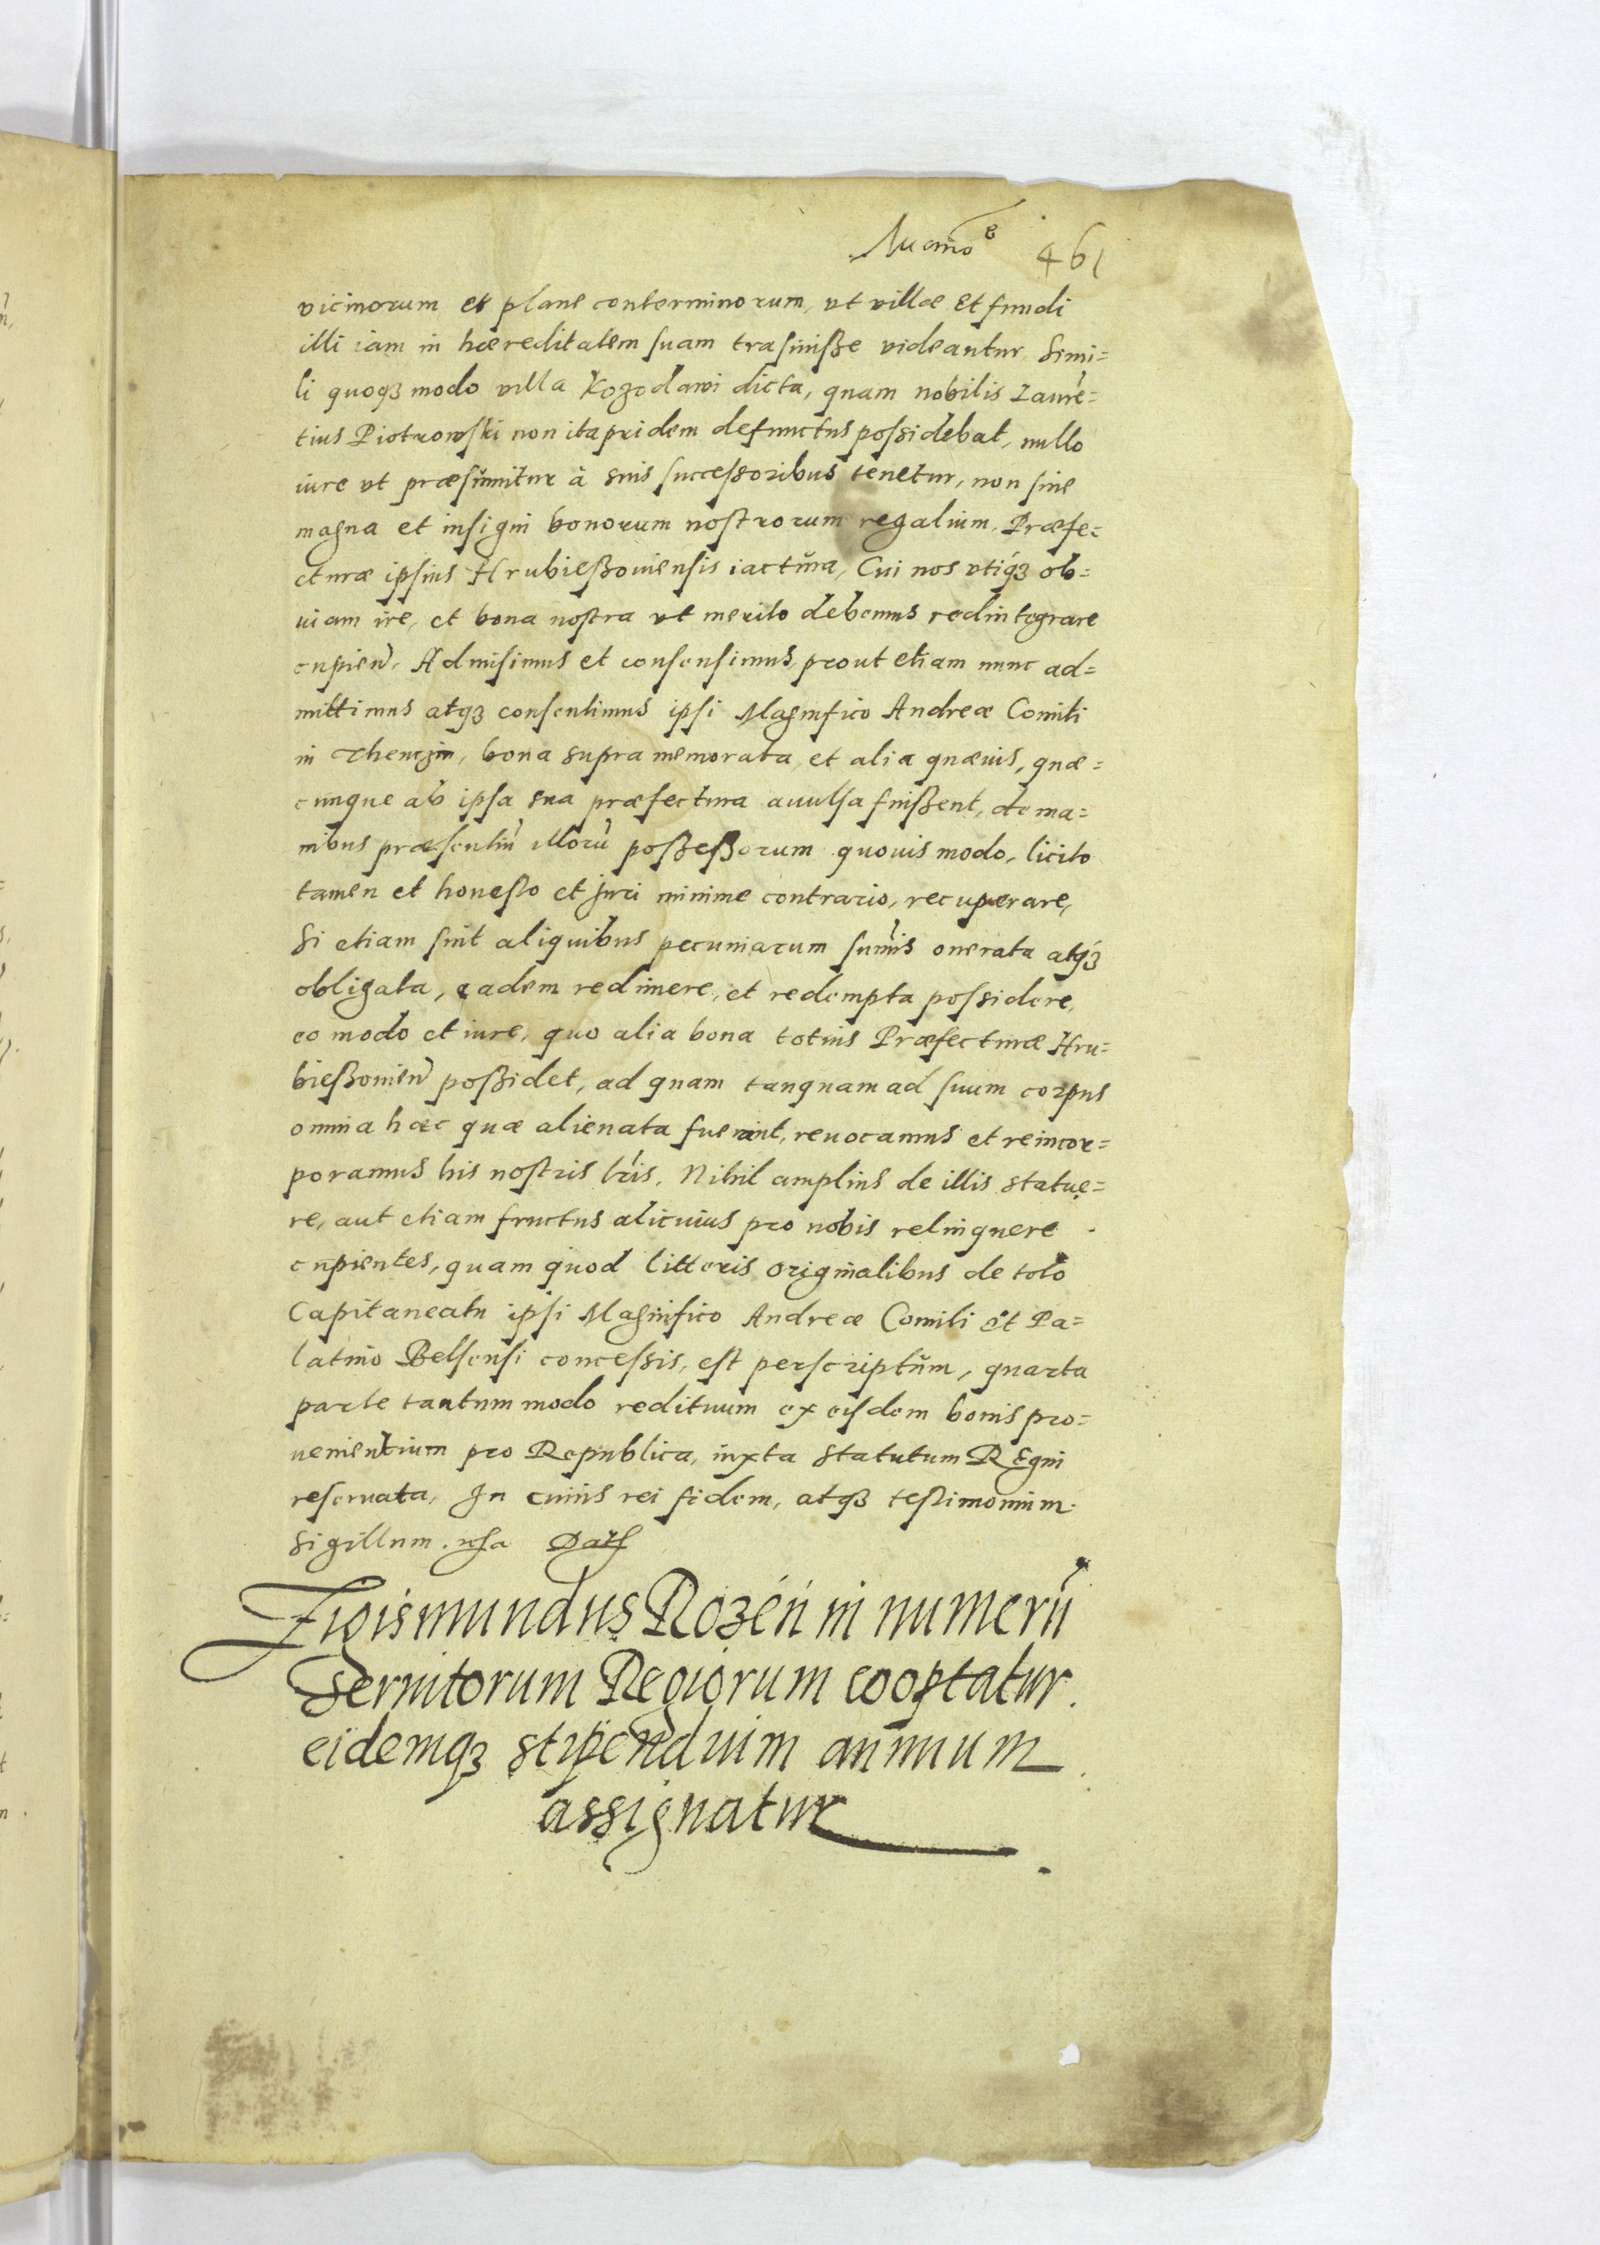 461
vicinorum et plane conterminorum, vt villæ et fundi
illi iam in hæreditatem suam trasiuisse videantur. Simi=
li quoqꝫ modo villa Kozodawi dicta, quam nobilis Laurē=
tius Piotrowski non ita pridem defunctus possidebat, nullo
iure vt præsumitur à suis successoribus tenetur, non sine
magna et insigni bonorum nostrorum regalium. Præfe=
cturæ ipsius Hrubiessouiensis iactura, Cui nos vtiqꝫ ob=
uiam ire, et bona nostra vt merito debemus redintegrare
cupien. Admisimus et consensimus, prout etiam nunc ad=
mittimus atqꝫ consentimus ipsi Magnifico Andreæ Comiti
in Thenczin, bona supra memorata, et alia quæuis, quæ=
cunque ab ipsa sua præfectura auulsa fuissent, de ma=
nibus præsentiū illorū possessorum quouis modo, licito
tamen et honesto et juri minime contrario, recuperare,
Si etiam sint aliquibus pecuniarum sumis onerata atqꝫ
obligata, eadem redimere, et redempta possidere,
eo modo et iure, quo alia bona totius Præfecturæ Hru=
biessouien possidet, ad quam tanquam ad suum corpus
omnia hæc quæ alienata fuerint, reuocamus et reincor=
poramus his nostris lris. Nihil amplius de illis statue=
re, aut etiam fructus alicuius pro nobis relinquere
cupientes, quam quod litteris originalibus de toto
Capitaneatu ipsi Magnifico Andreæ Comiti et Pa=
latino Belsensi concessis, est perscriptum, quarta
parte tantum modo redituum ex eisdem bonis pro=
uenientium pro Republica, iuxta statutum Regni
reseruata. In cuius rei fidem, atqꝫ testimonium
sigillum.
Sigismundus Rozén in numerū
Seruitorum Regiorum cooptatur.
eidemqꝫ stipendium annuum
assignatur